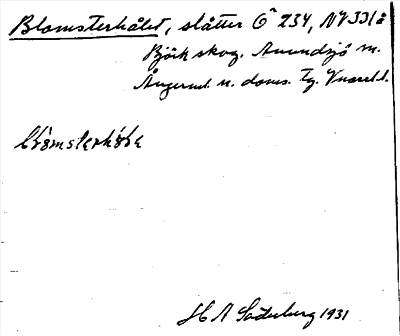 Blomsterhålet, slåtter Ö 234, NV 331 å
Björkskog. Anundsjö sn.
Ångerml. n. doms. tg. Vnorrl. l.
blömsterhöLa
H A Söderberg 1931